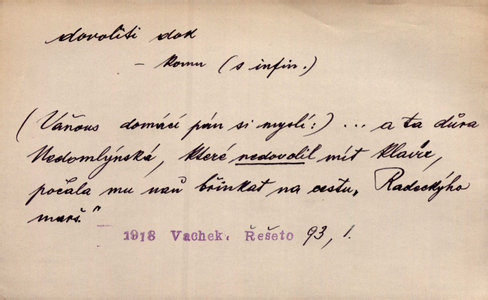 dovoliti dok
– komu (s infin.)
(Váňous domácí pán si myslí:) ... a ta důra
Nedomlýnská, které nedovolil mít klavír,
počala mu naň břinkat na cestu „Radeckýho
marš."
1918 Vachek, Řešeto 93, 1.